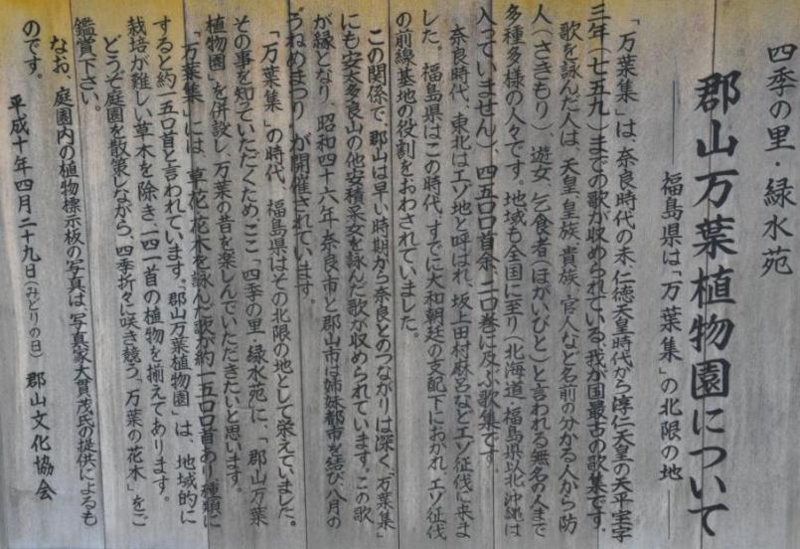 四季の里・緑水苑
郡山万葉植物園について
―― 福島県は「万葉集」の北限の地 ――
「万葉集」は、奈良時代の末、仁徳天皇時代から淳仁天皇の天平宝字
三年(七五九)までの歌が収められている、我が国最古の歌集です。
歌を詠んだ人は、天皇、皇族、貴族、官人など名前の分かる人から防
人(さきもり)、遊女、乞食者(ほがいびと)と言われる無名の人まで
多種多様の人々です。地域も全国に至り(北海道、福島県以北、沖縄は
入っていません)、四五〇〇首余、二〇巻に及ぶ歌集です。
奈良時代、東北はエゾ地と呼ばれ、坂上田村麻呂などエゾ征伐に来ま
した。福島県はこの時代、すでに大和朝廷の支配下におかれ、エゾ征伐
の前線基地の役割をおわされていました。
この関係で、郡山は早い時期から奈良とのつながりは深く、「万葉集」
にも安太多良山の他安積采女を詠んだ歌が収められています。この歌
が縁となり、昭和四十六年、奈良市と郡山市は姉妹都市を結び、八月の
うねめまつり が開催されています。
「万葉集」の時代、福島県はその北限の地として栄えていました。
その事を知っていただくため、ここ「四季の里・緑水苑」に、「郡山万葉
植物園」を併設し、万葉の昔を楽しんでいただきたいと思います。
「万葉集」には、草花、花木を詠んだ歌が約一五〇〇首あり、種類に
すると約一五〇首と言われています。「郡山万葉植物園」は、地域的に
栽培が難しい草木を除き、一四一首の植物を揃えてあります。
どうぞ庭園を散策しながら、四季折々に咲き競う、「万葉の花木」をご
鑑賞下さい。
なお、庭園内の植物標示板の写真は、写真家大貫茂氏の提供によるも
のです。
平成十年四月二十九日(みどりの日) 郡山文化協会